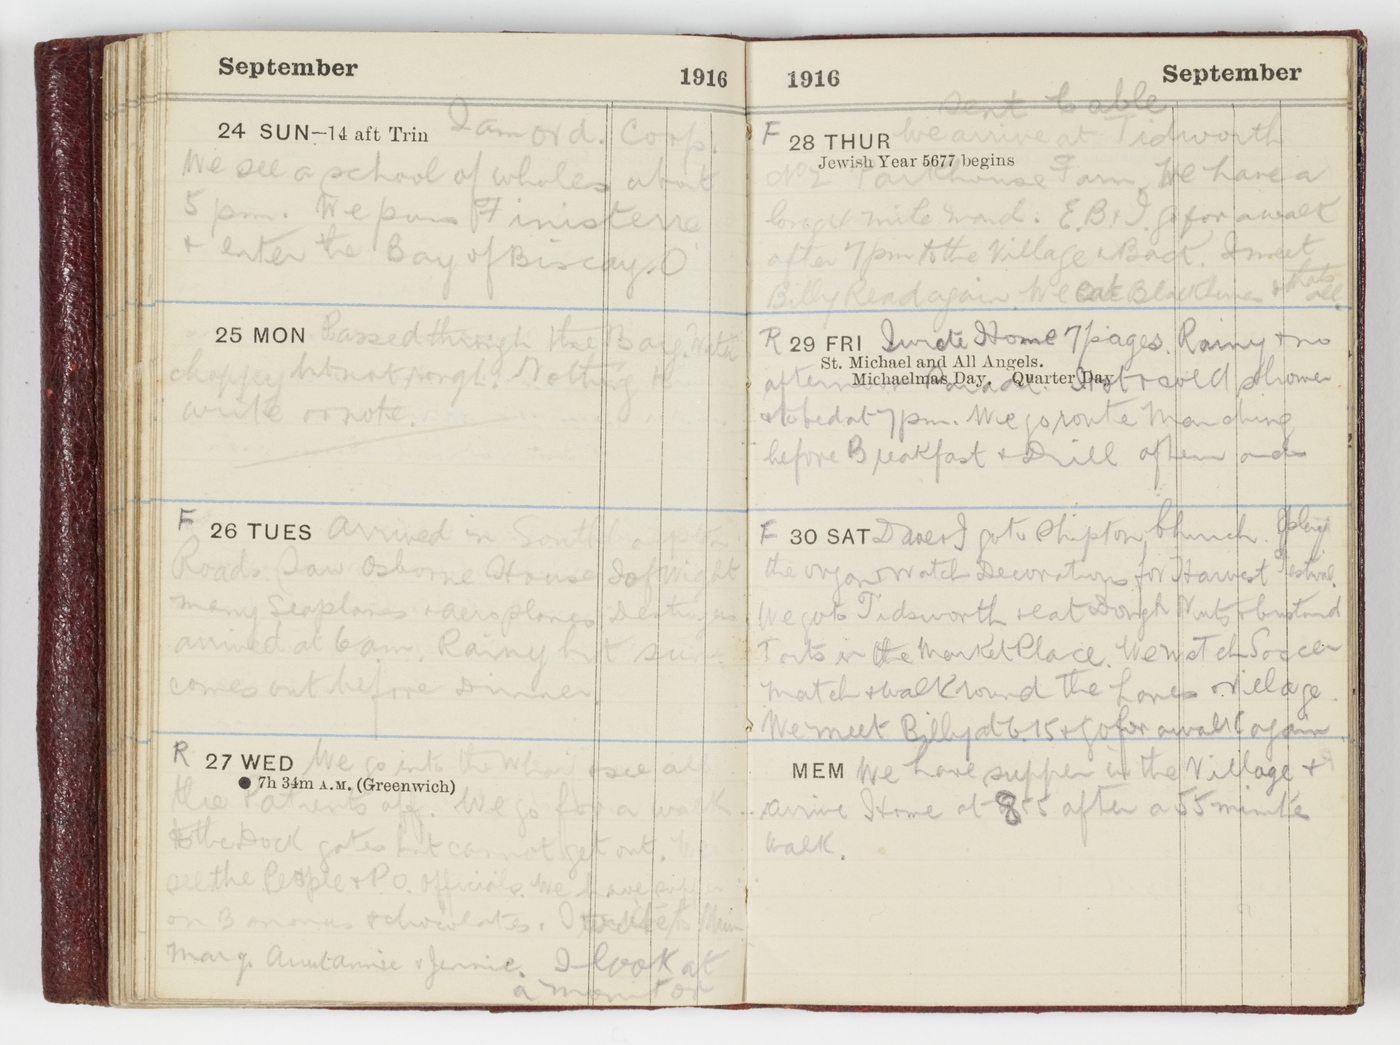 September 1916
24 SUN—14 aft Trin I am ord. Corp.
We see a school of whales about
5 pm. We pass Finisterre
+ enter the Bay of Biscay.
25 MON Passed through the Bay. Water
choppy but not rough. Nothing to
write or note.
F
26 TUES Arrived in Southampton
Roads. Saw Osborne House I of Wight
many Seaplanes + aeroplanes Destroyers
arrived at 6 am. Rainy but sun
comes out before Dinner.
R
27 WED We go into the Wharf + see all
● 7h 34m A.M. (Greenwich)
the Patients off. We go for a walk
to the Dock gates but cannot get out. We
see the People + P.O. officials. We have supper
on Bananas + chocolates. I to Mum
Marg. Aunt Annie + Jennie. I look at
a monitor
1916 September
sent Cable
F
28 THUR We arrive at Tidworth
Jewish Year 5677 begins
No 2 Parkhouse Farm. We have a
long mile . E.B. + I go for a walk
after 7pm to the Village + Back. I meet
Billy Read again. We eat Blackberries + thats
all
R
29 FRI I wrote Home 7 pages. Rainy + no
St. Michael and All Angels.
Michaelmas Day. Quarter Day
afternoon Parade. Hot + cold shower
+ to bed at 7pm. We go route Marching
before Breakfast + Drill afternoons
F
30 SAT Dave + I go to Shipton Church. I play
the organ + watch Decorations for Harvest Festival.
We go to Tidsworth + eat Dough Nuts + Custard
Tarts in the Market Place. We watch Soccer
match + walk round the Lanes + Village.
We meet Billy at 6.15 + go for a walk again
MEM We have supper in the Village +
arrive Home at 8 55 after a 55 minute
walk.